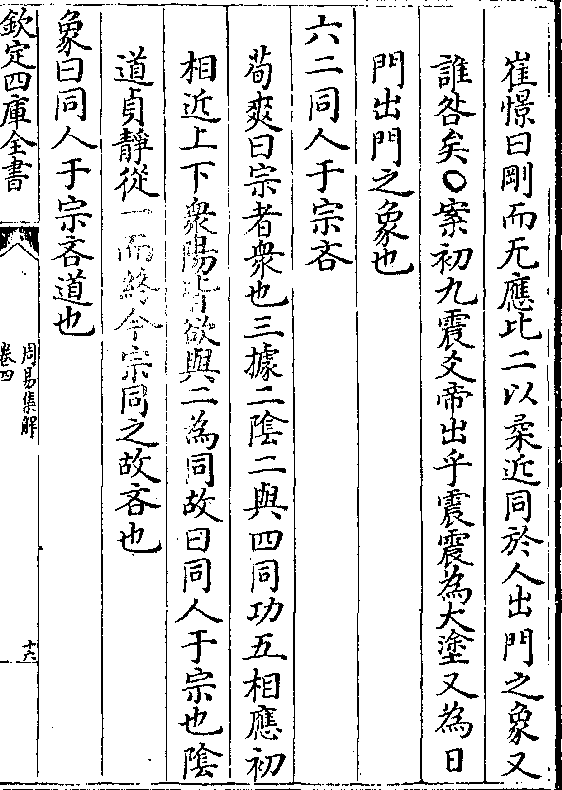 崔憬曰剛而无應比二以柔近同於人出門之象又
誰咎矣○案初九震爻帝出乎震震為大塗又為日
門出門之象也
六二同人于宗吝
荀爽曰宗者衆也三據二陰二與四同功五相應初
相近上下衆陽皆欲與二為同故曰同人于宗也陰
道貞靜從一而終今宗同之故吝也
象曰同人于宗吝道也
欽定四庫全書
周易集解
卷四
十六